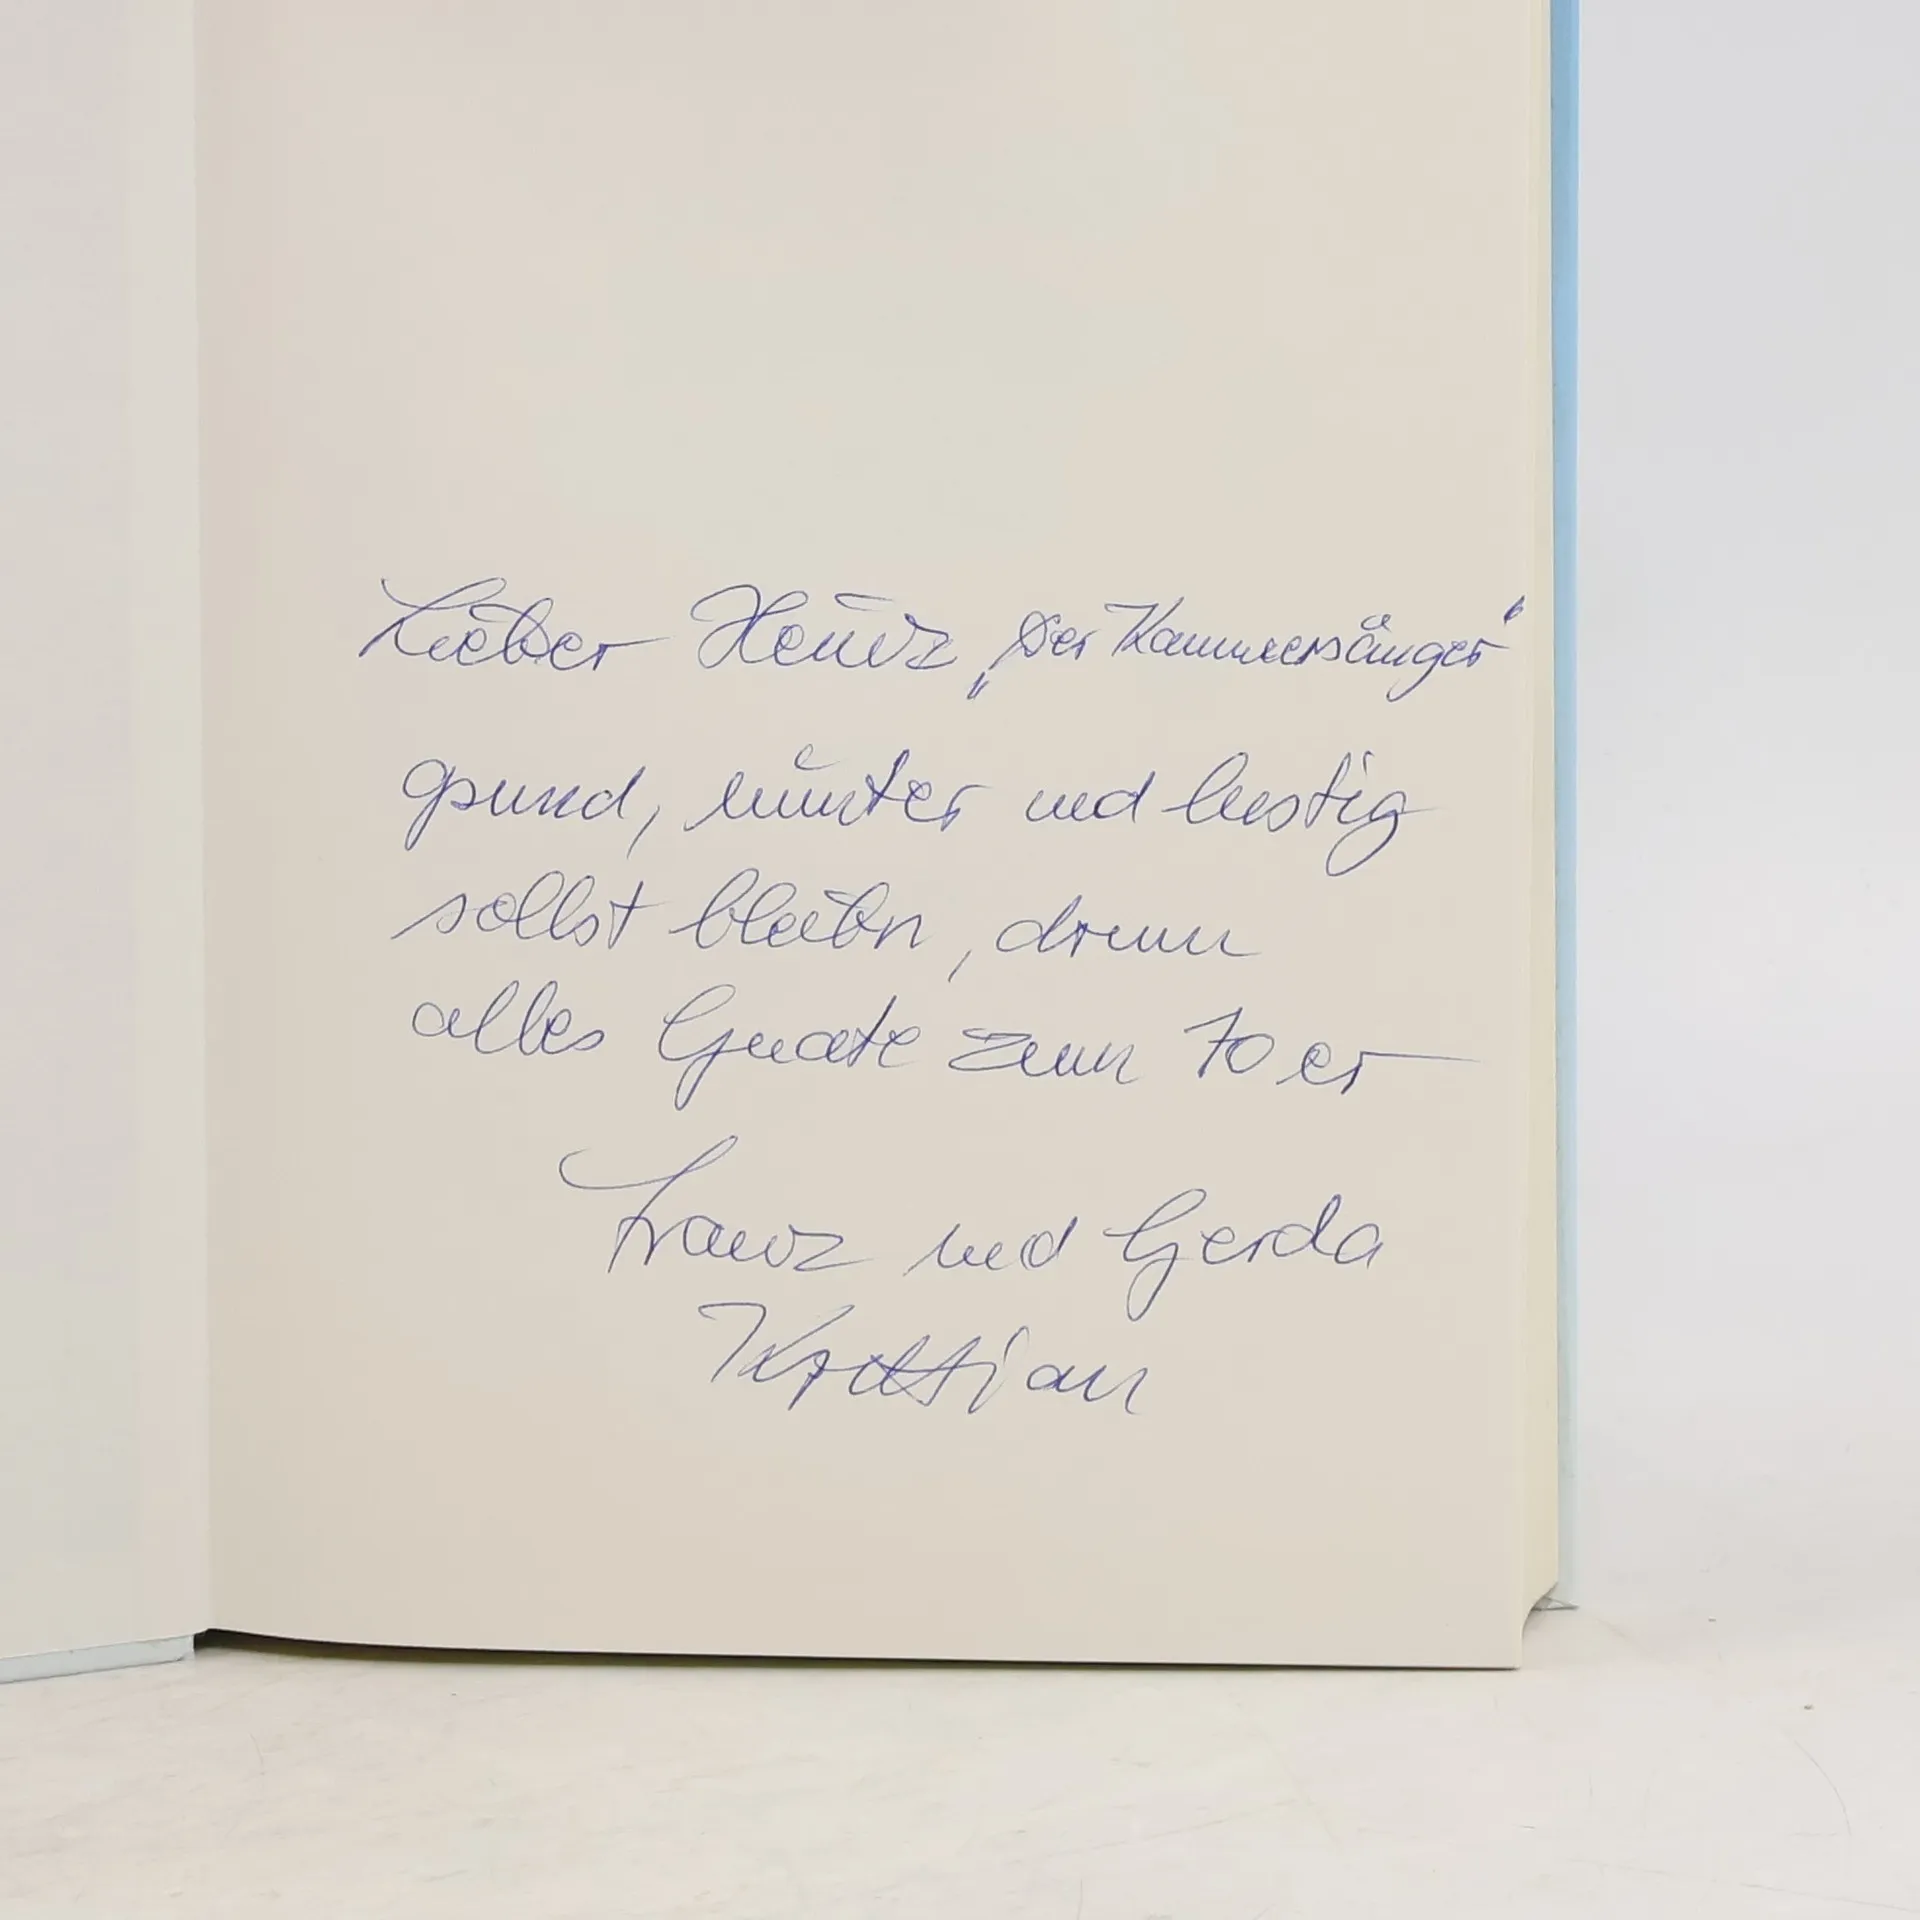 Lieber Heinz „Der Kammersänger"
gsund, munter und lustig
sollst bleibn, drum
alles Guate zum 70er
Franz und Gerda